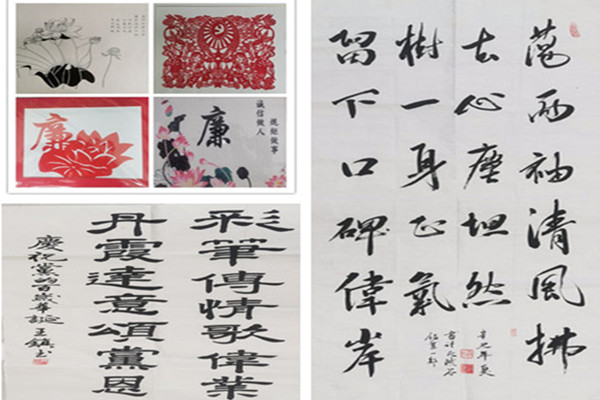 廉
廉
诚信做人
规矩做事
彩筆傳情歌偉業
丹霞達意頌黨恩
慶祝黨的百歲華誕
蕩两袖清風拂
去心塵坦然
樹一身正氣
留下口碑偉岸
辛丑年夏